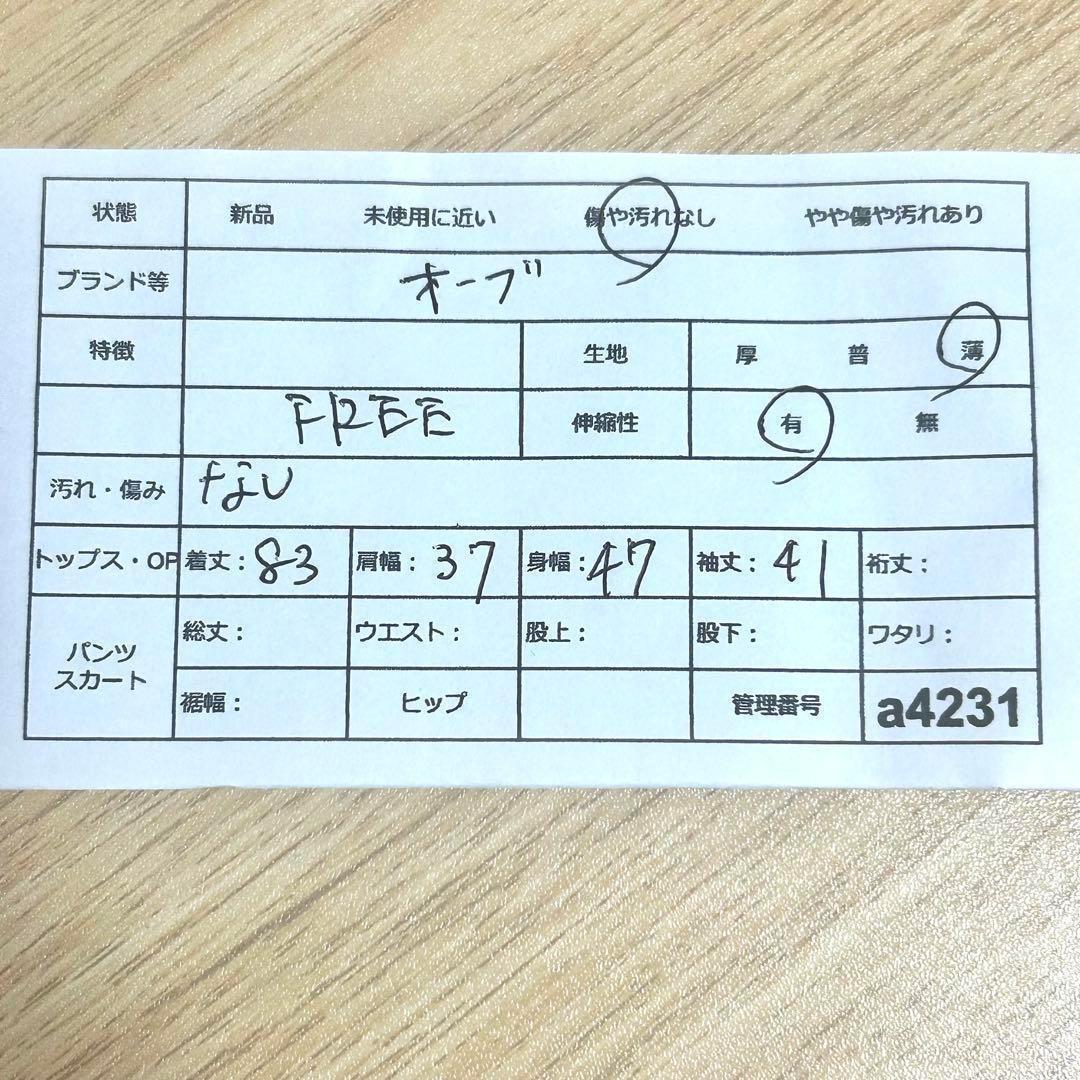 状態 新品 未使用に近い 傷や汚れなし やや傷や汚れあり
ブランド等 オーブ
特徴 生地 厚 普 薄
FREE 伸縮性 有 無
汚れ・傷み なし
トップス・OP 着丈：83 肩幅：37 身幅：47 袖丈：41 裄丈：
パンツ スカート 総丈： ウエスト： 股上： 股下： ワタリ：
裾幅： ヒップ 管理番号 a4231